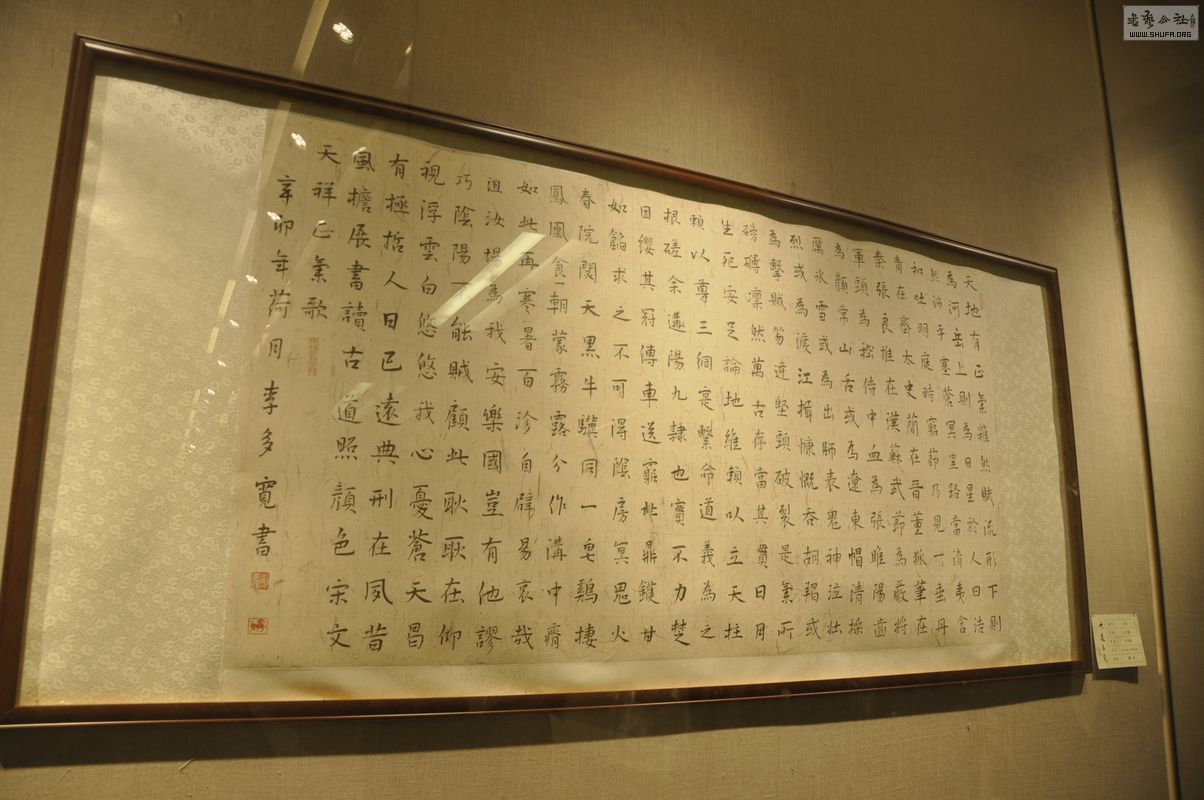 天地有正氣雜然賦流形下則
為河岳上則為日星於人曰浩
然沛乎塞蒼冥皇路當清夷含
和吐明庭時窮節乃見一一垂丹
青在齊太史簡在晉董狐筆在
秦張良椎在漢蘇武節為嚴將
軍頭為嵇侍中血為張睢陽齒
為顏常山舌或為遼東帽清操
厲冰雪或為出師表鬼神泣壯
烈或為渡江楫慷慨吞胡羯或
為擊賊笏逆豎頭破裂是氣所
磅礴凜然萬古存當其貫日月
生死安足論地維賴以立天柱
賴以尊三綱寔繫命道義為之
根嗟余遘陽九隸也實不力楚
囚纓其冠傳車送窮北鼎鑊甘
如飴求之不可得陰房冥鬼火
春院閟天黑牛驥同一皂雞棲
鳳凰食一朝蒙霧露分作溝中瘠
如此再寒暑百沴自辟易哀哉
沮洳場為我安樂國豈有他謬
巧陰陽不能賊顧此耿耿在仰
視浮雲白悠悠我心憂蒼天曷
有極哲人日已遠典刑在夙昔
風簷展書讀古道照顏色宋文
天祥正氣歌
辛卯年荷月 李多寬書
書藝公社
WWW.SHUFA.ORG